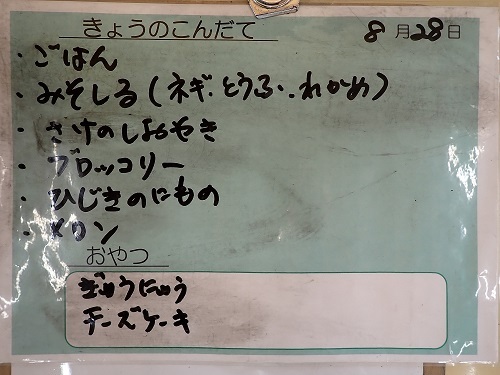 きょうのこんだて 8月28日
・ごはん
・みそしる(ネギ.とうふ.わかめ)
・さけのしおやき
・ブロッコリー
・ひじきのにもの
・メロン
おやつ
ぎゅうにゅう
チーズケーキ